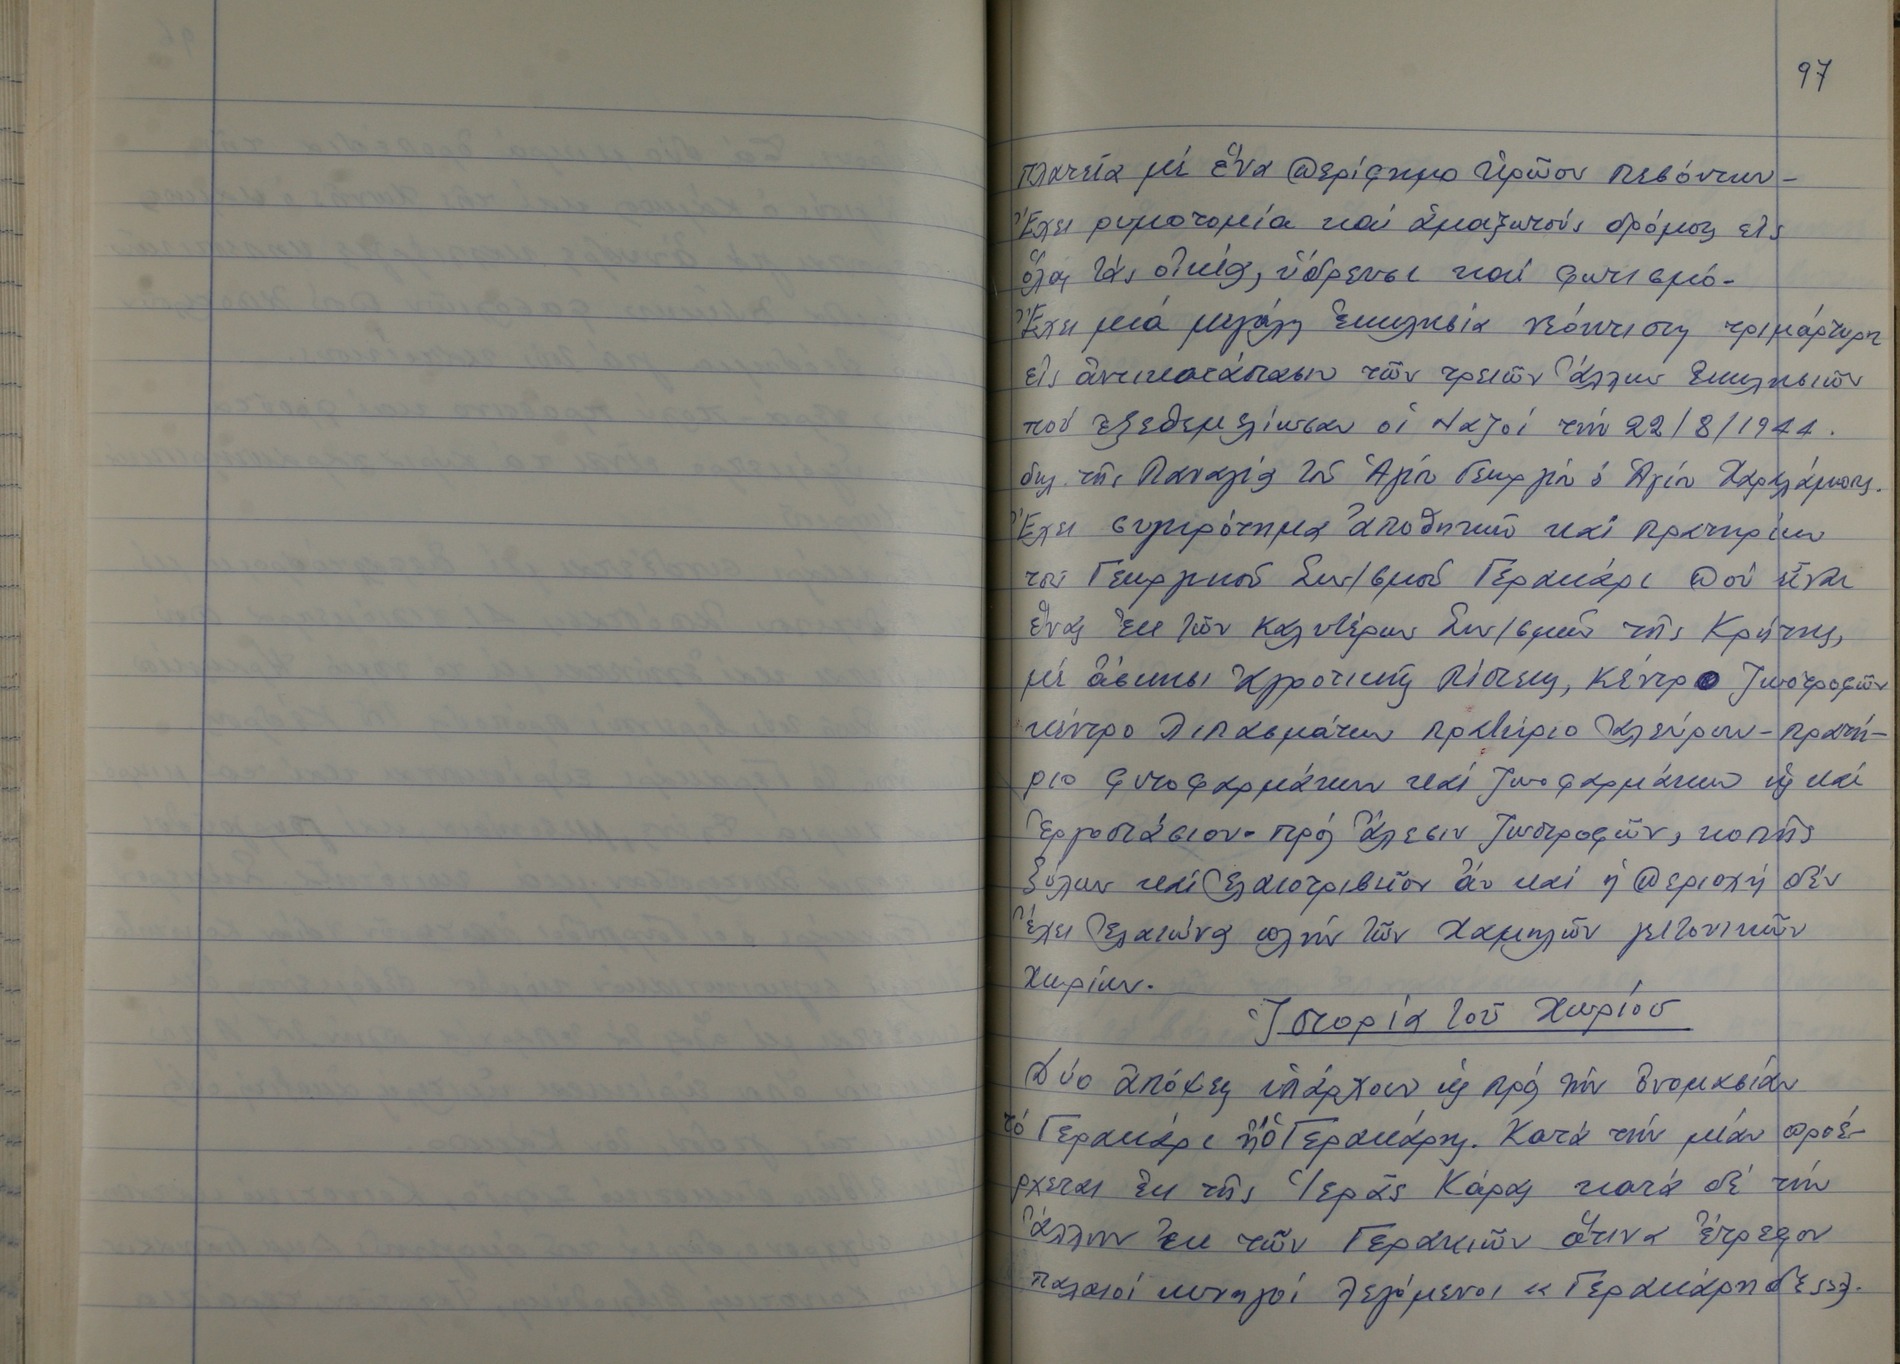 97
πλατεῖα μέ ἕνα περίφημο Ἡρῶον πεσόντων-
Ἔχει ρυμοτομία καί ἁμαξωτούς δρόμους εἰς
ὅλας τάς οἰκίας, ὕδρευσι καί φωτισμό-
Ἔχει μιά μεγάλη Ἐκκλησία νεόκτιστη τριμάρτυρη
εἰς ἀντικατάστασιν τῶν τρειῶν ἄλλων Ἐκκλησιῶν
πού ἐξεθεμελίωσαν οἱ Ναζοί τήν 22/8/1944.
δηλ. τῆς Παναγίας τοῦ Ἁγίου Γεωργίου & Ἁγίου Χαραλάμπους.
Ἔχει συγκρότημα ἀποθηκῶν καί πρατηρίων
τοῦ Γεωργικοῦ Συν/σμοῦ Γερακάρι πού εἶναι
ἕνας ἐκ τῶν καλυτέρων Συν/σμῶν τῆς Κρήτης,
μέ ἄσκησι Ἀγροτικῆς Πίστεως, κέντρο ζωοτροφῶν
κέντρο λιπασμάτων πρατήριο ἀλεύρων-πρατή-
ριο φυτοφαρμάκων καί ζωοφαρμάκων ὡς καί
Ἐργοστάσιον-πρός ἄλεσιν ζωοτροφῶν, κοπῆς
ξύλων καί ἐλαιοτριβεῖον ἄν καί ἡ περιοχή δέν
ἔχει ἐλαιώνας πλήν τῶν χαμηλῶν γειτονικῶν
χωρίων.
Ἱστορία τοῦ Χωρίου
Δύο ἀπόψεις ὑπάρχουν ὡς πρός τήν ὀνομασίαν
τό Γερακάρι ἤ ὁ Γερακάρης. Κατά τήν μίαν προέ-
ρχεται ἐκ τῆς Ἱερᾶς Κάρας κατά δέ τήν
ἄλλην ἐκ τῶν Γερακιῶν ἅτινα ἔτρεφον
παλαιοί κυνηγοί λεγόμενοι «Γερακάρηδες».